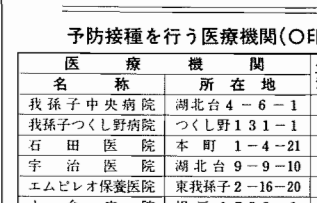 予防接種を行う医療機関(〇印
医療機関
名称 所在地
我孫子中央病院 湖北台4-6-1
我孫子つくし野病院 つくし野131-1
石田医院 本町1-4-21
宇治医院 湖北台9-9-10
エムピレオ保養医院 東我孫子2-16-20